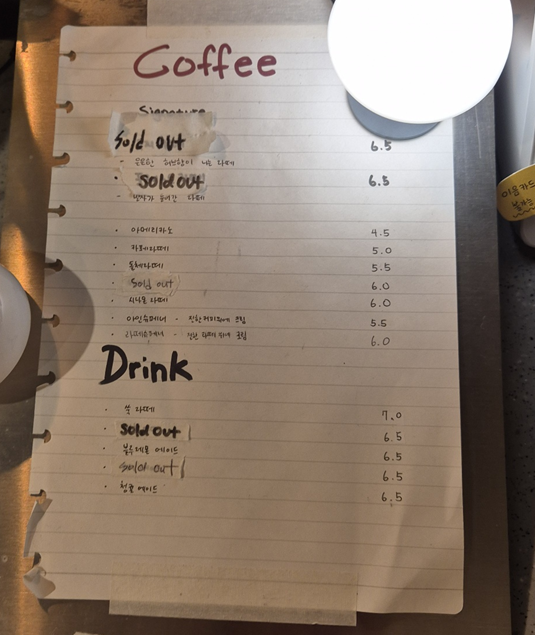 Coffee
Signature
Sold out 6.5
- 은은한 허브향이 나는 라떼
Sold out 6.5
라떼
· 아메리카노 4.5
· 카페라떼 5.0
· 돌체라떼 5.5
· Sold out 6.0
· 시나몬라떼 6.0
· 아인슈페너 - 진한커피위에 크림 5.5
· 라떼슈페너 - 위에 크림 6.0
Drink
· 쑥 라떼 7.0
· Sold out 6.5
· 레몬 에이드 6.5
· Sold out 6.5
· 청귤에이드 6.5
이용카드